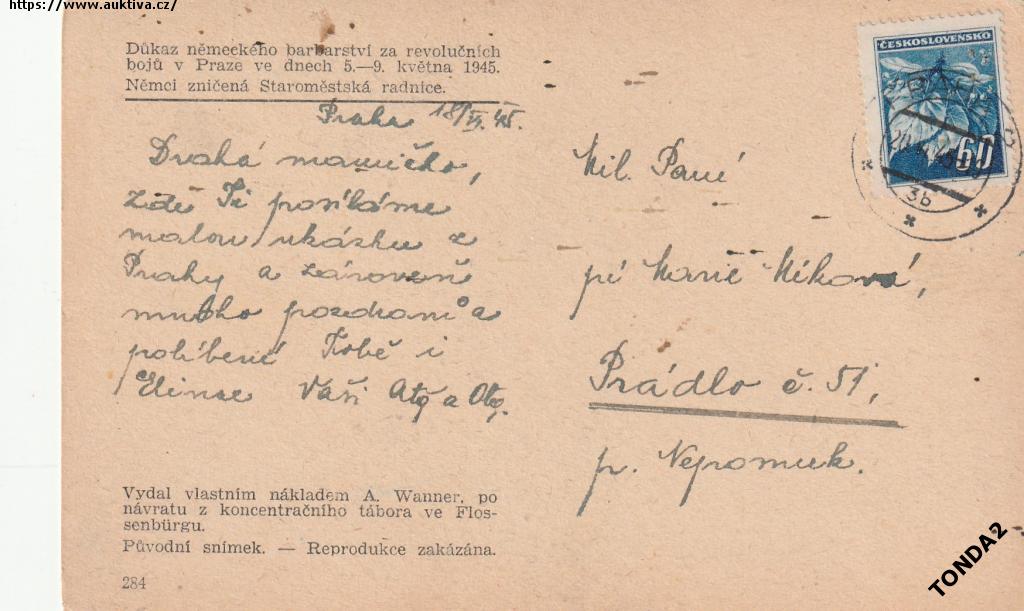 https://www.auktiva.cz/
Důkaz německého barbarství za revolučních
bojů v Praze ve dnech 5.—9. května 1945.
Němci zničená Staroměstská radnice.
Praha 18/VI. 45.
Drahá mamičko,
zde Ti posíláme
malou ukázku z
Prahy a zároveň
mnoho pozdravů a
políbení Tobě i
Vaši a
Mil. Paní
pí Marie Míková,
Prádlo č. 51,
p. Nepomuk.
ČESKOSLOVENSKO
60
3b
Vydal vlastním nákladem A. Wanner, po
návratu z koncentračního tábora ve Flos-
senbürgu.
Původní snímek. — Reprodukce zakázána.
284
TONDA2